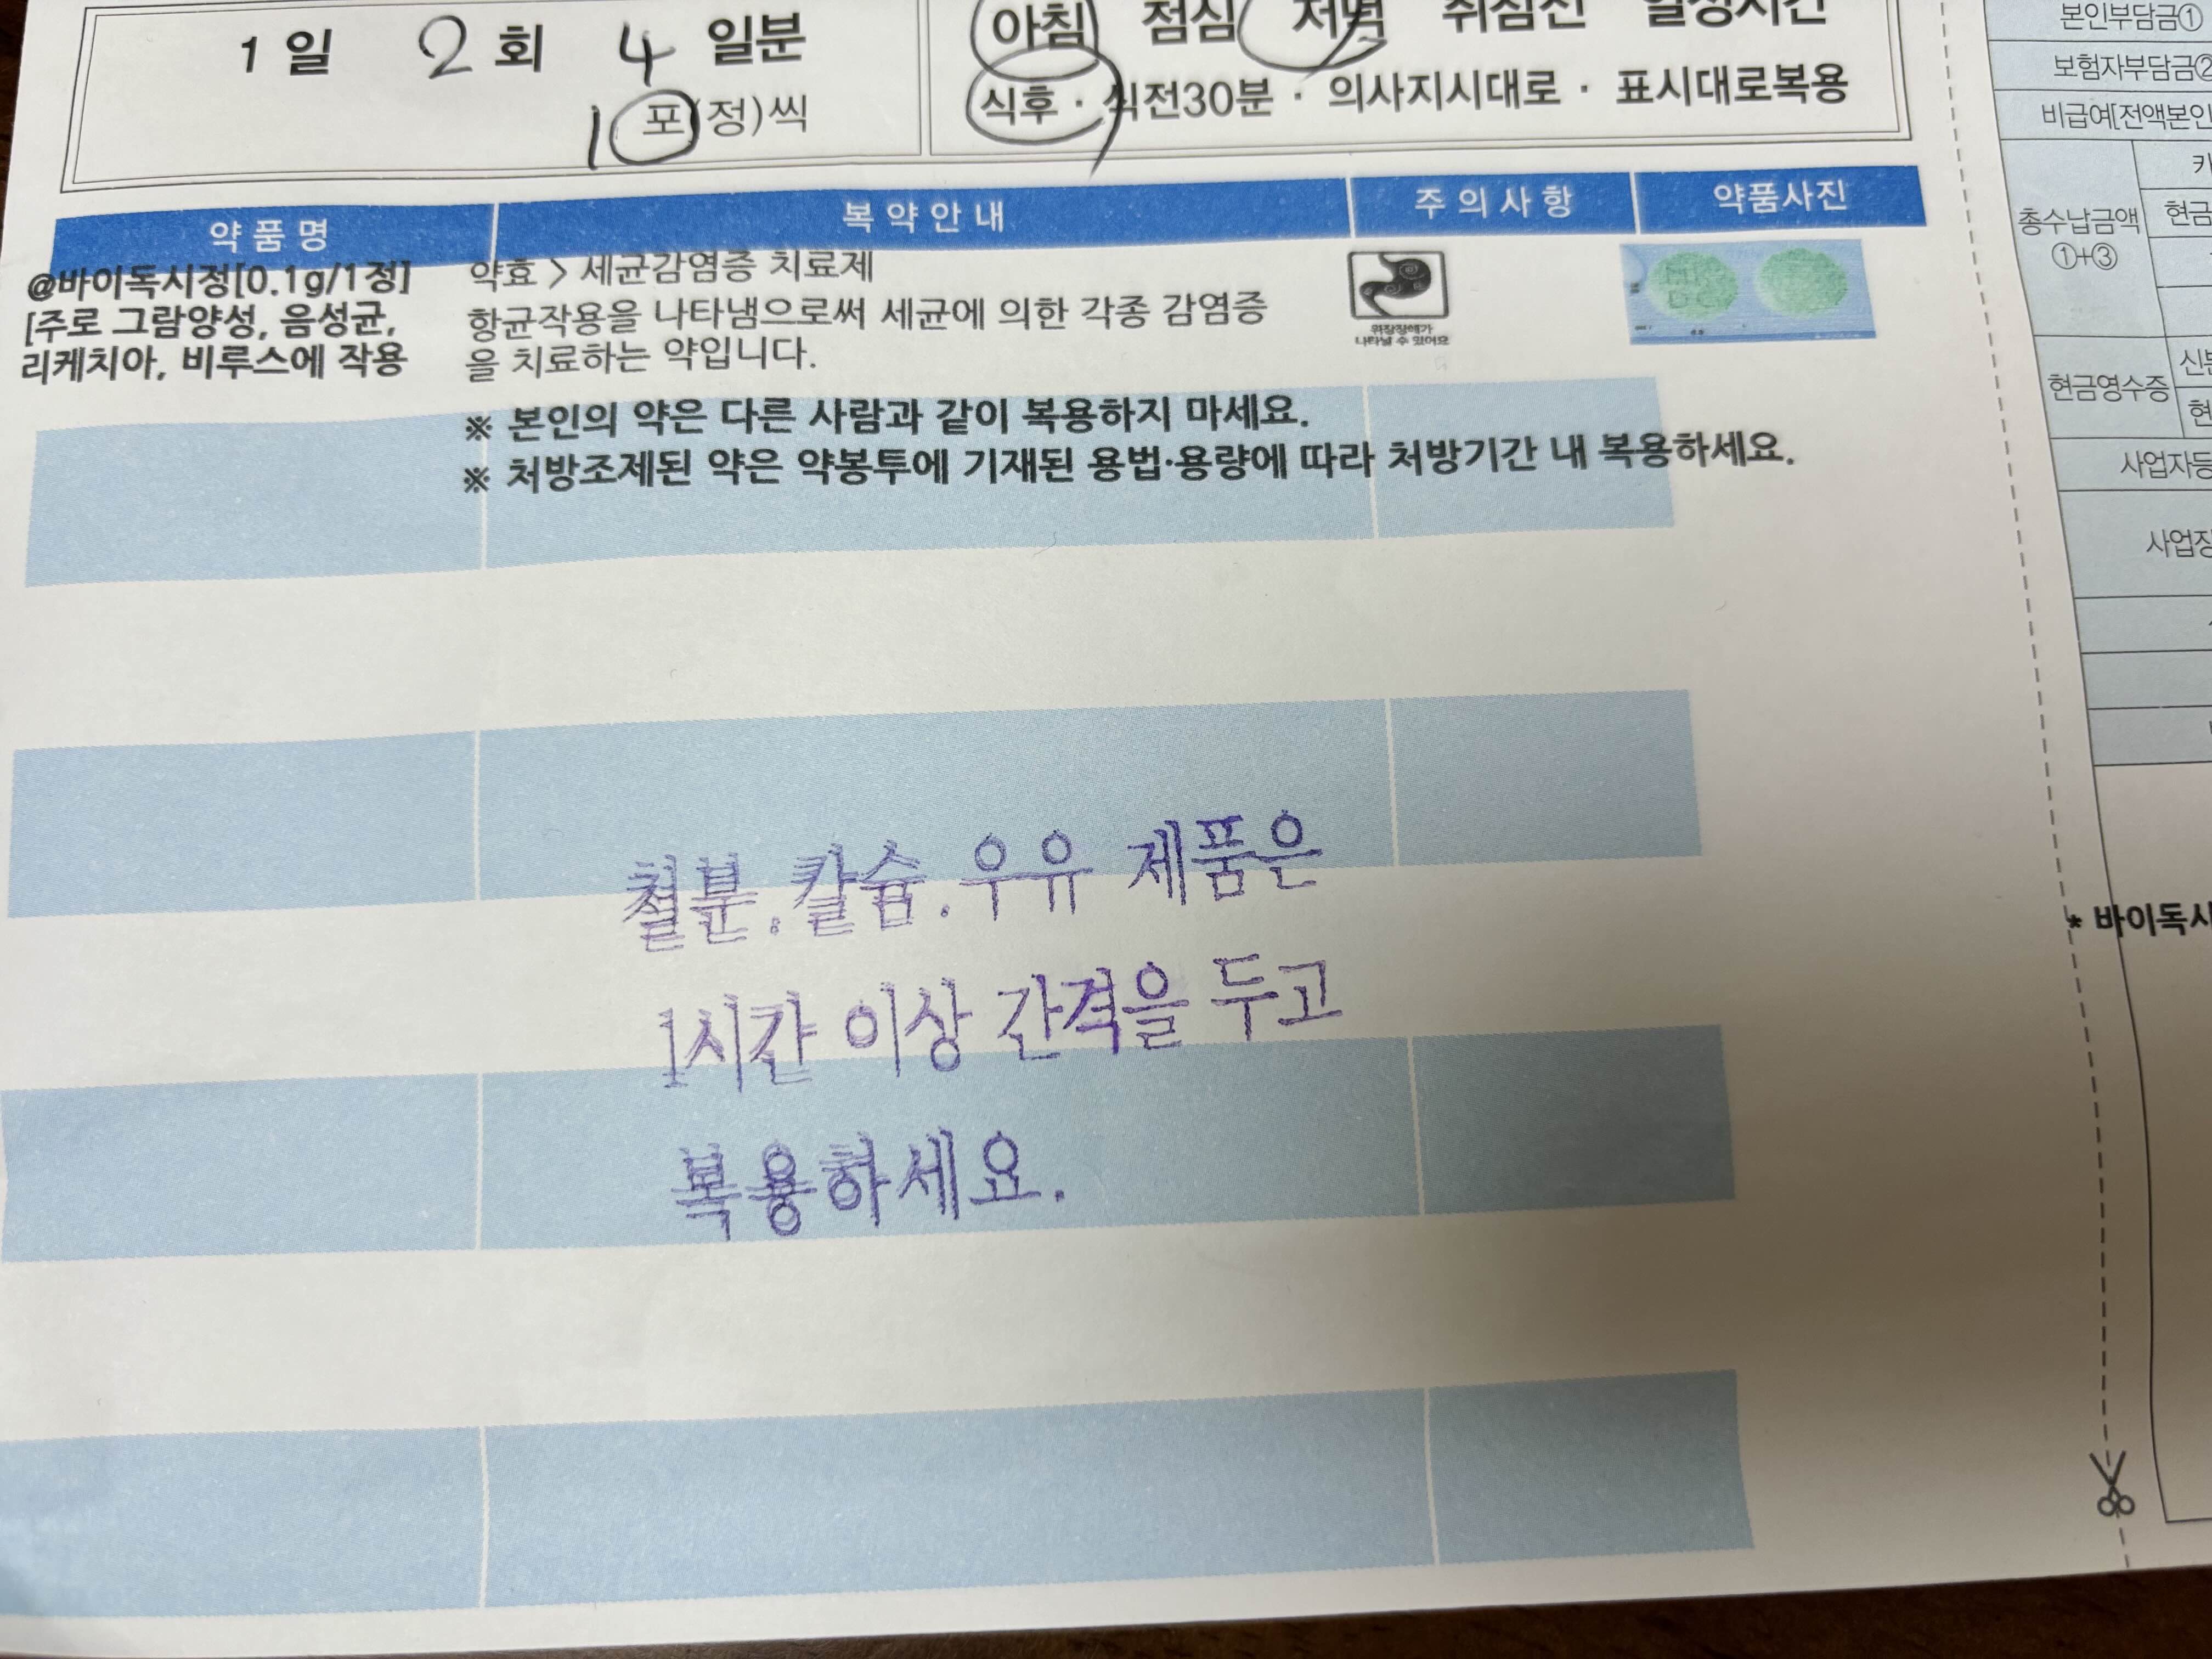 1 일 2 회 4 일분
1 포(정)씩
아침 점심 저녁 취침전 일정시간
식후 · 식전30분 · 의사지시대로 · 표시대로복용
약 품 명 복 약 안 내 주 의 사 항 약품사진
@바이독시정[0.1g/1정]
[주로 그람양성, 음성균,
리케치아, 비루스에 작용
약효 > 세균감염증 치료제
항균작용을 나타냄으로써 세균에 의한 각종 감염증
을 치료하는 약입니다.
위장장애가
나타날 수 있어요
※ 본인의 약은 다른 사람과 같이 복용하지 마세요.
※ 처방조제된 약은 약봉투에 기재된 용법·용량에 따라 처방기간 내 복용하세요.
철분.칼슘.우유 제품은
1시간 이상 간격을 두고
복용하세요.
본인부담금①
보험자부담금②
비급여[전액본인
카
총수납금액
①+③
현금
현금영수증
신분
현
사업자등
사업장
* 바이독시